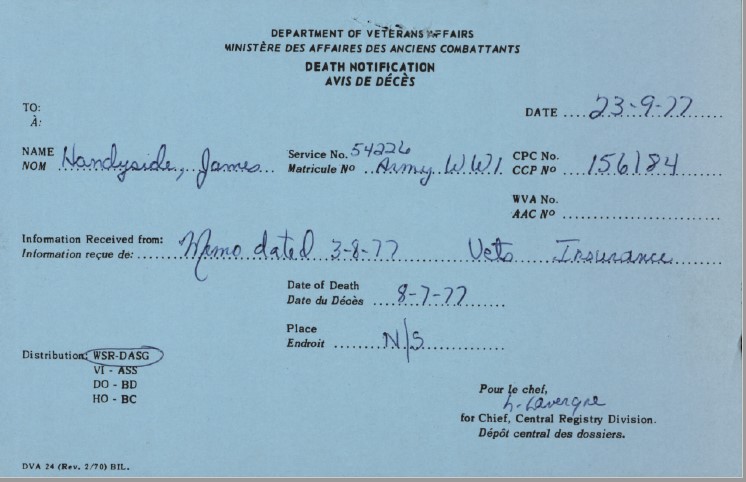 DEPARTMENT OF VETERANS AFFAIRS
MINISTÈRE DES AFFAIRES DES ANCIENS COMBATTANTS
DEATH NOTIFICATION
AVIS DE DÉCÈS
TO:
À:
DATE 23-9-77
NAME
NOM Handyside, James
Service No. 54226
Matricule No Army WW1
CPC No.
CCP No 156184
WVA No.
AAC No
Information Received from:
Information reçue de: Memo dated 3-8-77 Vets Insurance
Date of Death
Date du Décès 8-7-77
Place
Endroit N/S
Distribution: WSR-DASG
VI - ASS
DO - BD
HO - BC
Pour le chef,
L. Lavergne
for Chief, Central Registry Division.
Dépôt central des dossiers.
DVA 24 (Rev. 2/70) BIL.